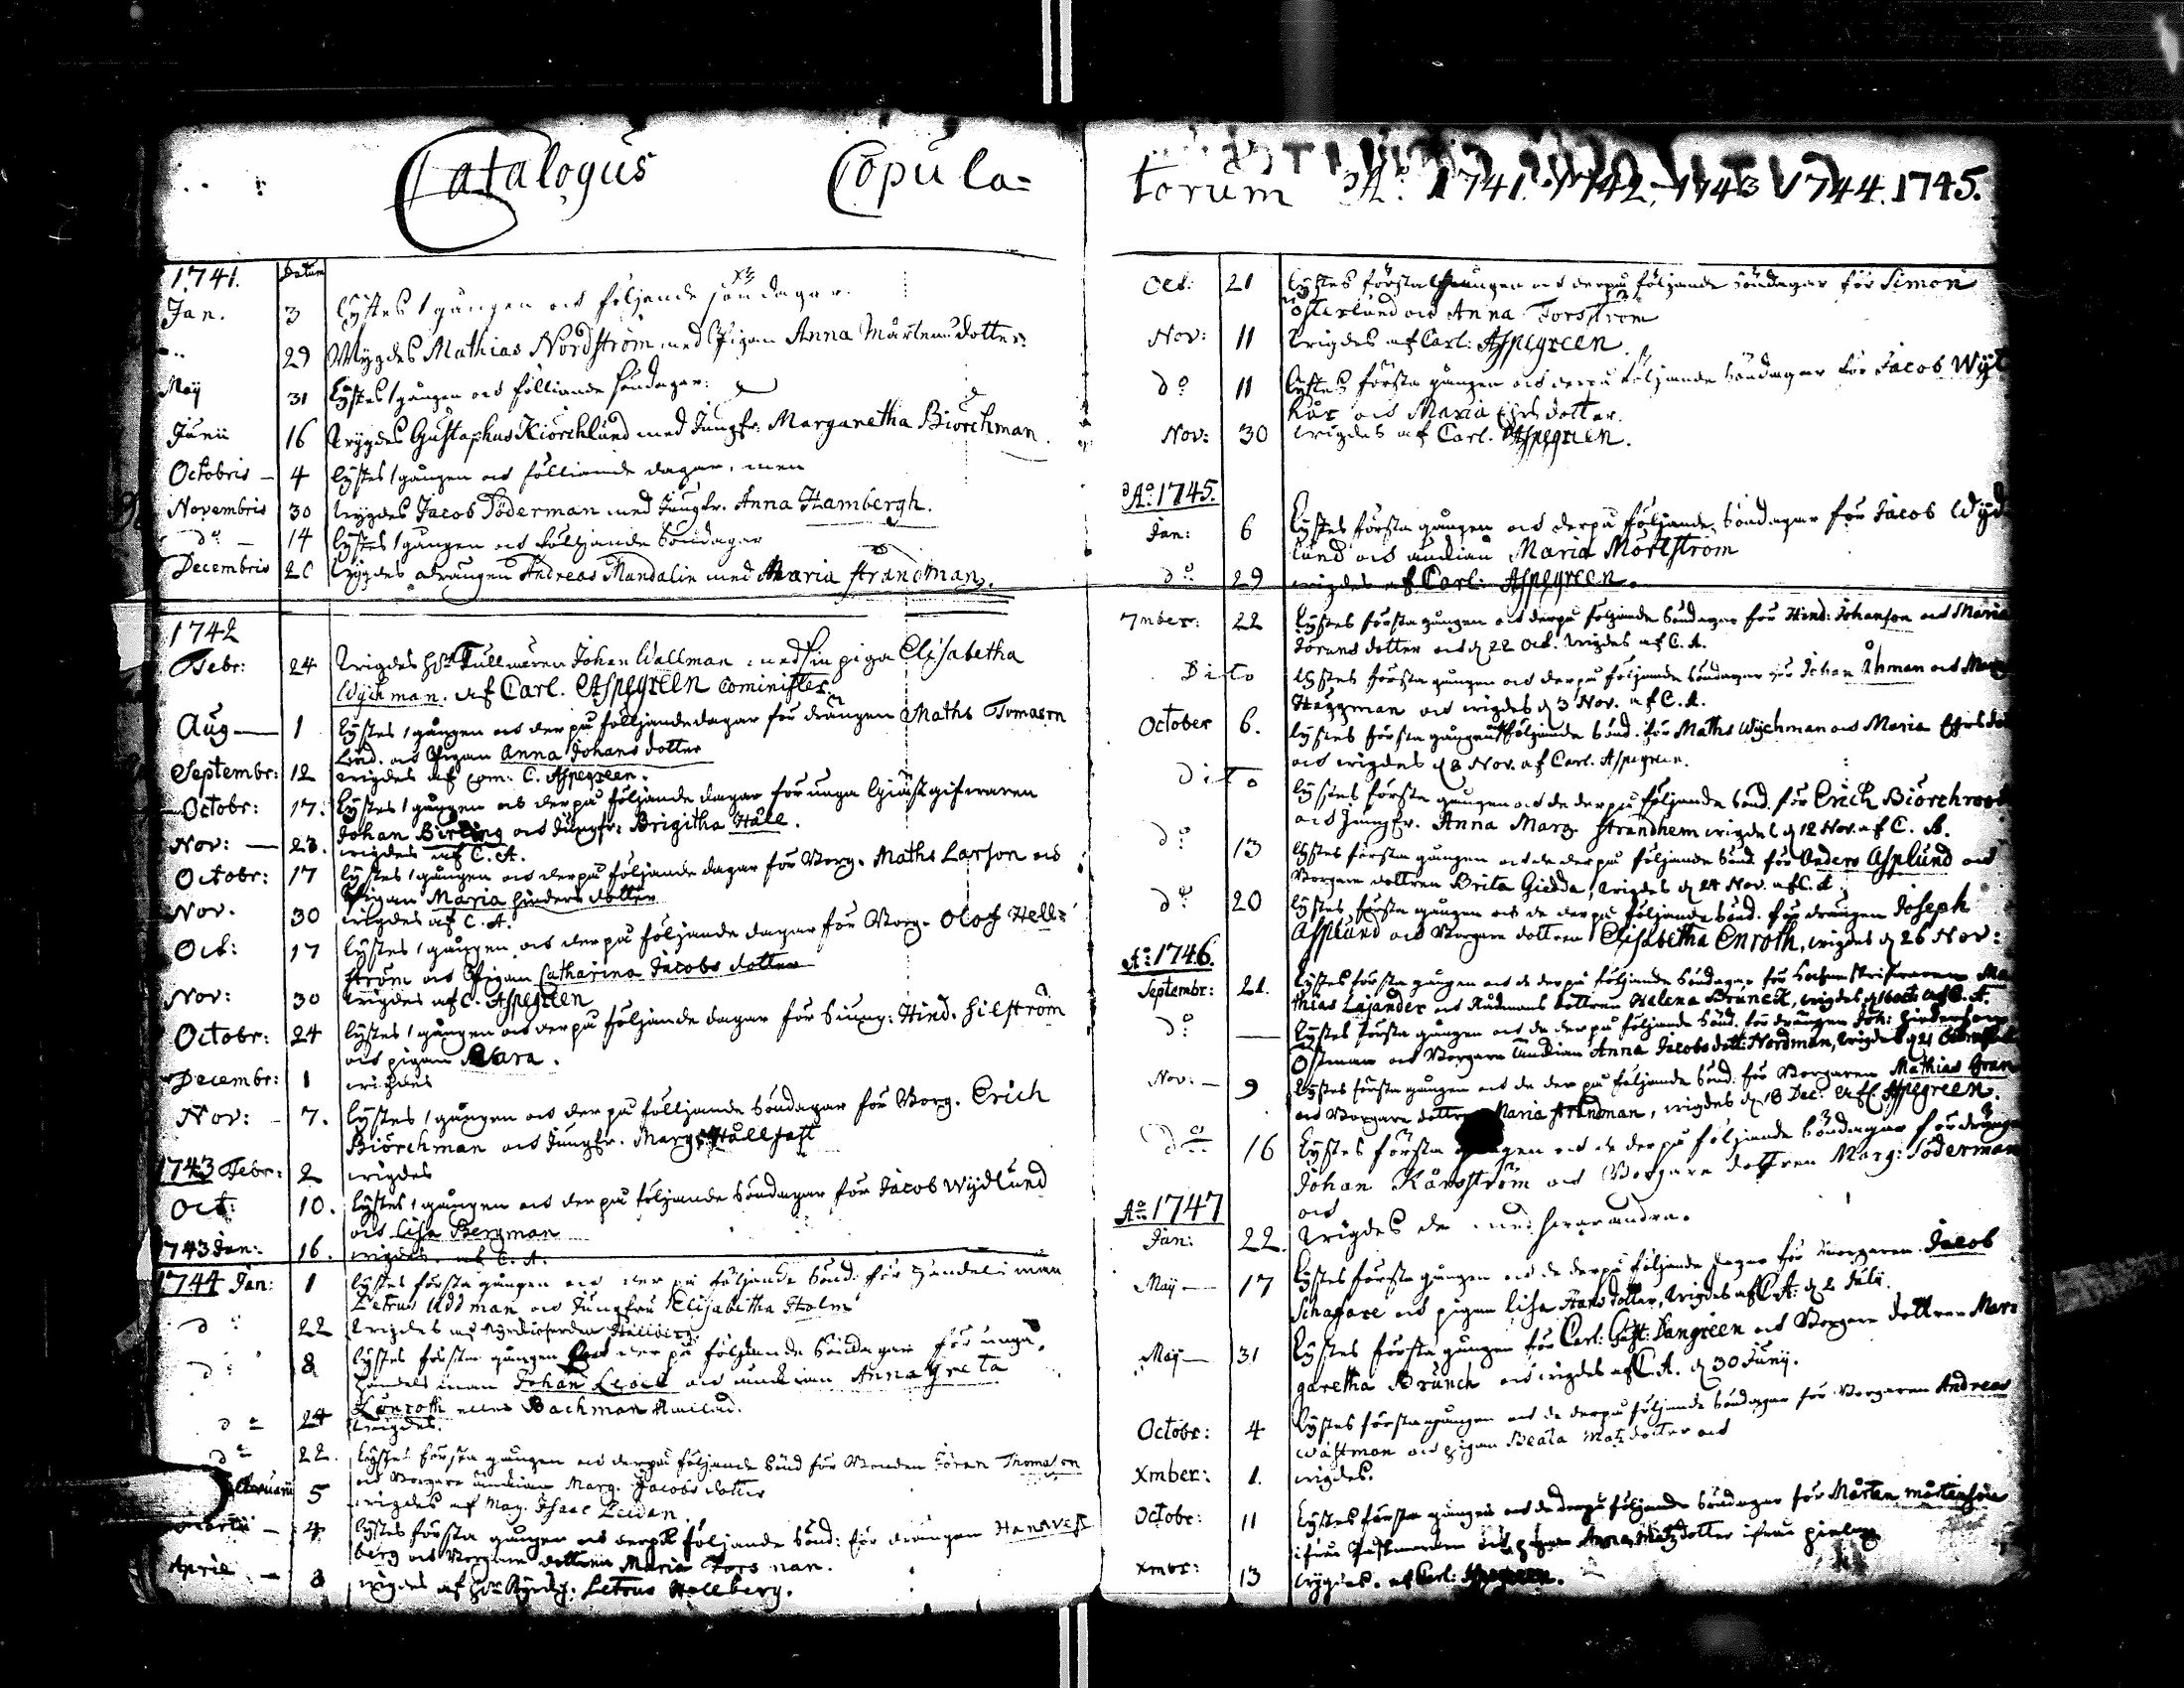 Catalogus Copula=
1741. Datum
Jan. 3 Lystes 1 gången och följande söndagar.
29 Wygdes Mathias Nordström med Pigan Anna Mårtensdotter.
Maij 31 Lystes 1 gången och fölliande söndagar:
Junii 16 Wygdes Gustaphus Kiörchlund med Jungfr. Margaretha Biörchman.
Octobris 4 lystes 1 gången och fölliande dagar, men
Novembris 30 wygdes Jacob Söderman med Jungfr. Anna Hambergh.
do 14 lystes 1 gången och följande Söndagar
Decembris wygdes drängen Andreas Mandalin med Maria Strandman.
1742
Febr: 24 Wigdes Johan Wallman med sin piga Elisabetha
Wychman. af Carl. Aspegreen Cominister.
Aug 1 lystes 1 gången och der på följande dagar för drängen Maths Tomason
Lind. och Pigan Anna Johansdotter
Septembr: 12 wigdes af Com: C. Aspegreen.
Octobr: 17. Lystes 1 gången och der på följande dagar för unga Giästgifwaren
Johan Birling och Jungfr: Brigitha Håll.
Nov: 23. wigdes af C. A.
Octobr: 17 lystes 1 gången och der på följande dagar för Borg. Maths Larson och
Pigan Maria Hinders dotter
Nov. 30 wigdes af C. A.
Oct: 17 lystes 1 gången och der på följande dagar för Borg. Olof Hell=
ström och Pigan Catharina Jacobs dotter
Nov: 30 wigdes af C. Aspegreen
Octobr: 24 lystes 1 gången och der på följande dagar för Hind. Hilström
och pigan
Decembr: 1 wigdes
Nov: 7. lystes 1 gången och der på fölljande Söndagar för Borg. Erich
Biörchman och Jungfr. Marg: Hållfast
1743 Febr: 2 wigdes
Oct: 10. lystes 1 gången och der på följande Söndagar för Jacob Wydlund
och Lisa Bergman
1743 Jan: 16. wigdes af C. A.
1744 Jan: 1 lystes första gången och der på följande Sönd. för Handelsman
Petrus Uddman och Jungfru Elisabetha Holm
do 22 Wigdes af
do 8 lystes första gången och der på följande Söndagar för unga
Handelsman Johan och änkian Anna Greta
Lönroth eller Bachman
do 24 wigdes.
do 22. Lystes första gången och derpå följande Sönd för Bonden Jöran Thomason
och Borgare änkian Marg. Jacobs dotter
Februarii 5 wigdes af Mag. Isaac
Martii 4 lystes första gången och derpå följande Sönd: för drängen Hans West
berg och Borgare dottren Maria Forsman.
April 8 wigdes af Petrus Hallberg.
torum Ao. 1741. 1742. 1743 1744. 1745.
Oct: 21 lystes första gången och derpå följande Söndagar för Simon
Österlund och Anna Forsström
Nov: 11 wigdes af Carl: Aspegreen.
do 11 lystes första gången och derpå följande Söndagar för Jacob
och Maria dotter.
Nov: 30 wigdes af Carl. Aspegreen.
Ao. 1745.
Jan: 6 Lystes första gången och derpå följande Söndagar för Jacob Wyd
lund och änkian Maria Mörtström
do 29 wigdes af Carl: Aspegreen.
7nber: 22 Lystes första gången och derpå följande Söndagar för Hind: Johanson och Maria
Jörans dotter och d 22 Oct. wigdes af C. A.
Dito lystes första gången och derpå följande Söndagar för Johan Åhman och
Häggman och wigdes d 3 Nov. af C. A.
October 6. lystes första gången följande Sönd. för Maths Wychman och Maria
och wigdes d 8 Nov. af Carl. Aspegreen.
Dito lystes första gången och de derpå följande Sönd. för Erich
och Jungfr. Anna Marg. Strandhem wigdes d 12 Nov. af C. A.
do 13 lystes första gången och de derpå följande Sönd för Anders Asplund och
Borgare dottren Brita Giedda, wigdes d 24 Nov. af C. A.
do 20 lystes första gången och de derpå följande Sönd. för drängen Joseph
Asplund och Borgare dottren Elisabetha Enroth, wigdes d 26 Nov:
Ao: 1746.
Septembr: 21. lystes första gången och de derpå följande Söndagar för Ma
thias Lajander och Rådmans dottren Helena Brunck, wigdes af C. A.
do lystes första gången och de derpå följande Sönd. för drängen Joh: Hinderson
Östman och Borgare änkian Anna Jacobs dott: Nordman, wigdes d 21
Nov: 9 Lystes första gången och de derpå följande Sönd. för Borgaren Mathias Gran
och Borgare dottren Maria Strandman, wigdes d 18 Dec: af C. Aspegreen.
do 16 Lystes första gången och de derpå följande Söndagar för drängen
Johan och Borgare dottren Marg: Söderman
och
Ao 1747
Jan: 22. Wigdes de med hwarandra.
Maij 17 Lystes första gången och de derpå följande dagar för Borgaren Jacob
Schafare och pigan Lisa Hans dotter, wigdes af C. A: d 2 Juli.
Maij 31 Lystes första gången för Carl: Gust: Dangreen och Borgare dottren Mar
garetha Brunck och wigdes af C. A. d 30 Junij.
Octobr: 4 Lystes första gången och de derpå följande Söndagar för Borgaren Andreas
Wästman och pigan Beata Matz dotter och
Xmber: 1. wigdes.
Octobr: 11 Lystes första gången och de derpå följande Söndagar för Mårten Mårtenson
ifrån och pigan Anna Matz dotter ifrån
Xmbr: 13 wygdes. af Carl: Aspegreen.